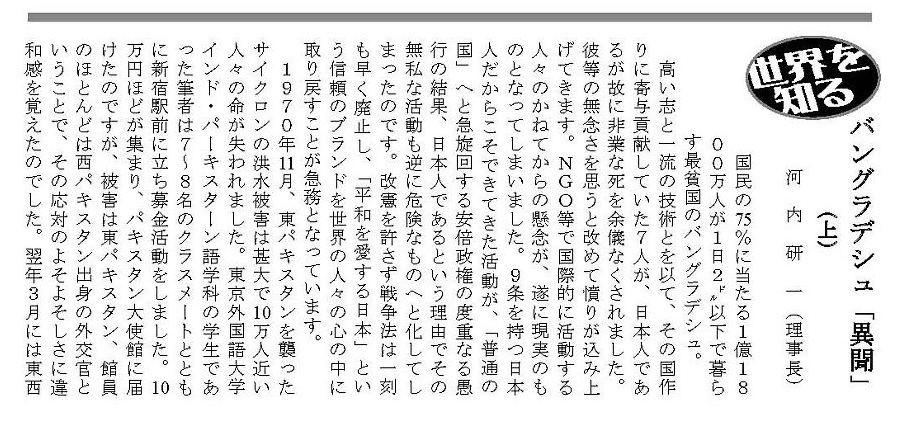 世界を
知る
バングラデシュ「異聞」
(上)
河内研一(理事長)
国民の75%に当たる1億18
00万人が1日2㌦以下で暮ら
す最貧国のバングラデシュ。
高い志と一流の技術とを以て、その国作
りに寄与貢献していた7人が、日本人であ
るが故に非業な死を余儀なくされました。
彼等の無念さを思うと改めて憤りが込み上
げてきます。NGO等で国際的に活動する
人々のかねてからの懸念が、遂に現実のも
のとなってしまいました。9条を持つ日本
人だからこそできてきた活動が、「普通の
国」へと急旋回する安倍政権の度重なる愚
行の結果、日本人であるという理由でその
無私な活動も逆に危険なものへと化してし
まったのです。改憲を許さず戦争法は一刻
も早く廃止し、「平和を愛する日本」とい
う信頼のブランドを世界の人々の心の中に
取り戻すことが急務となっています。
1970年11月、東パキスタンを襲った
サイクロンの洪水被害は甚大で10万人近い
人々の命が失われました。東京外国語大学
インド・パーキスターン語学科の学生であ
った筆者は7~8名のクラスメートととも
に新宿駅前に立ち募金活動をしました。10
万円ほどが集まり、パキスタン大使館に届
けたのですが、被害は東パキスタン、館員
のほとんどは西パキスタン出身の外交官と
いうことで、その応対のよそよそしさに違
和感を覚えたのでした。翌年3月には東西